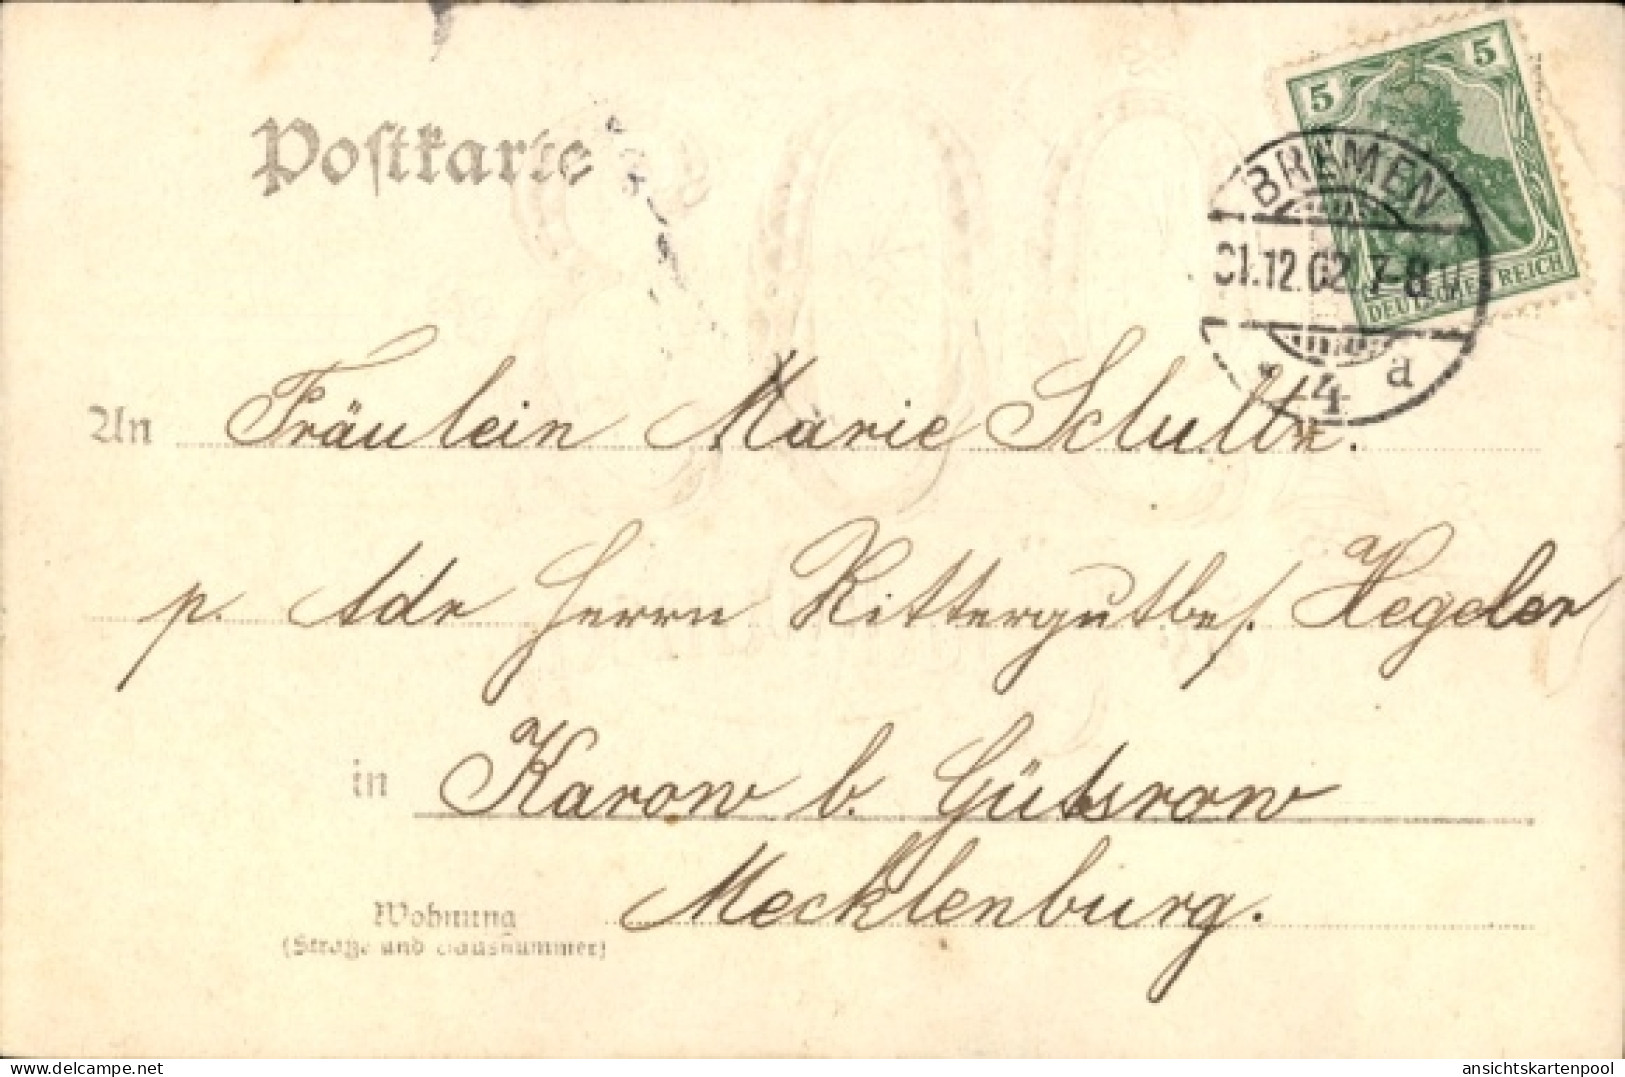 Postkarte
5 5
DEUTSCHES REICH
BREMEN
31.12.02. 7-8 V.
* 4 a
An Fräulein Marie Schulte.
p. Adr Herrn Rittergutbes. Hegeler
in Karow b. Güstrow
Mecklenburg.
Wohnung
(Straße und Hausnummer)
www.delcampe.net
ansichtskartenpool